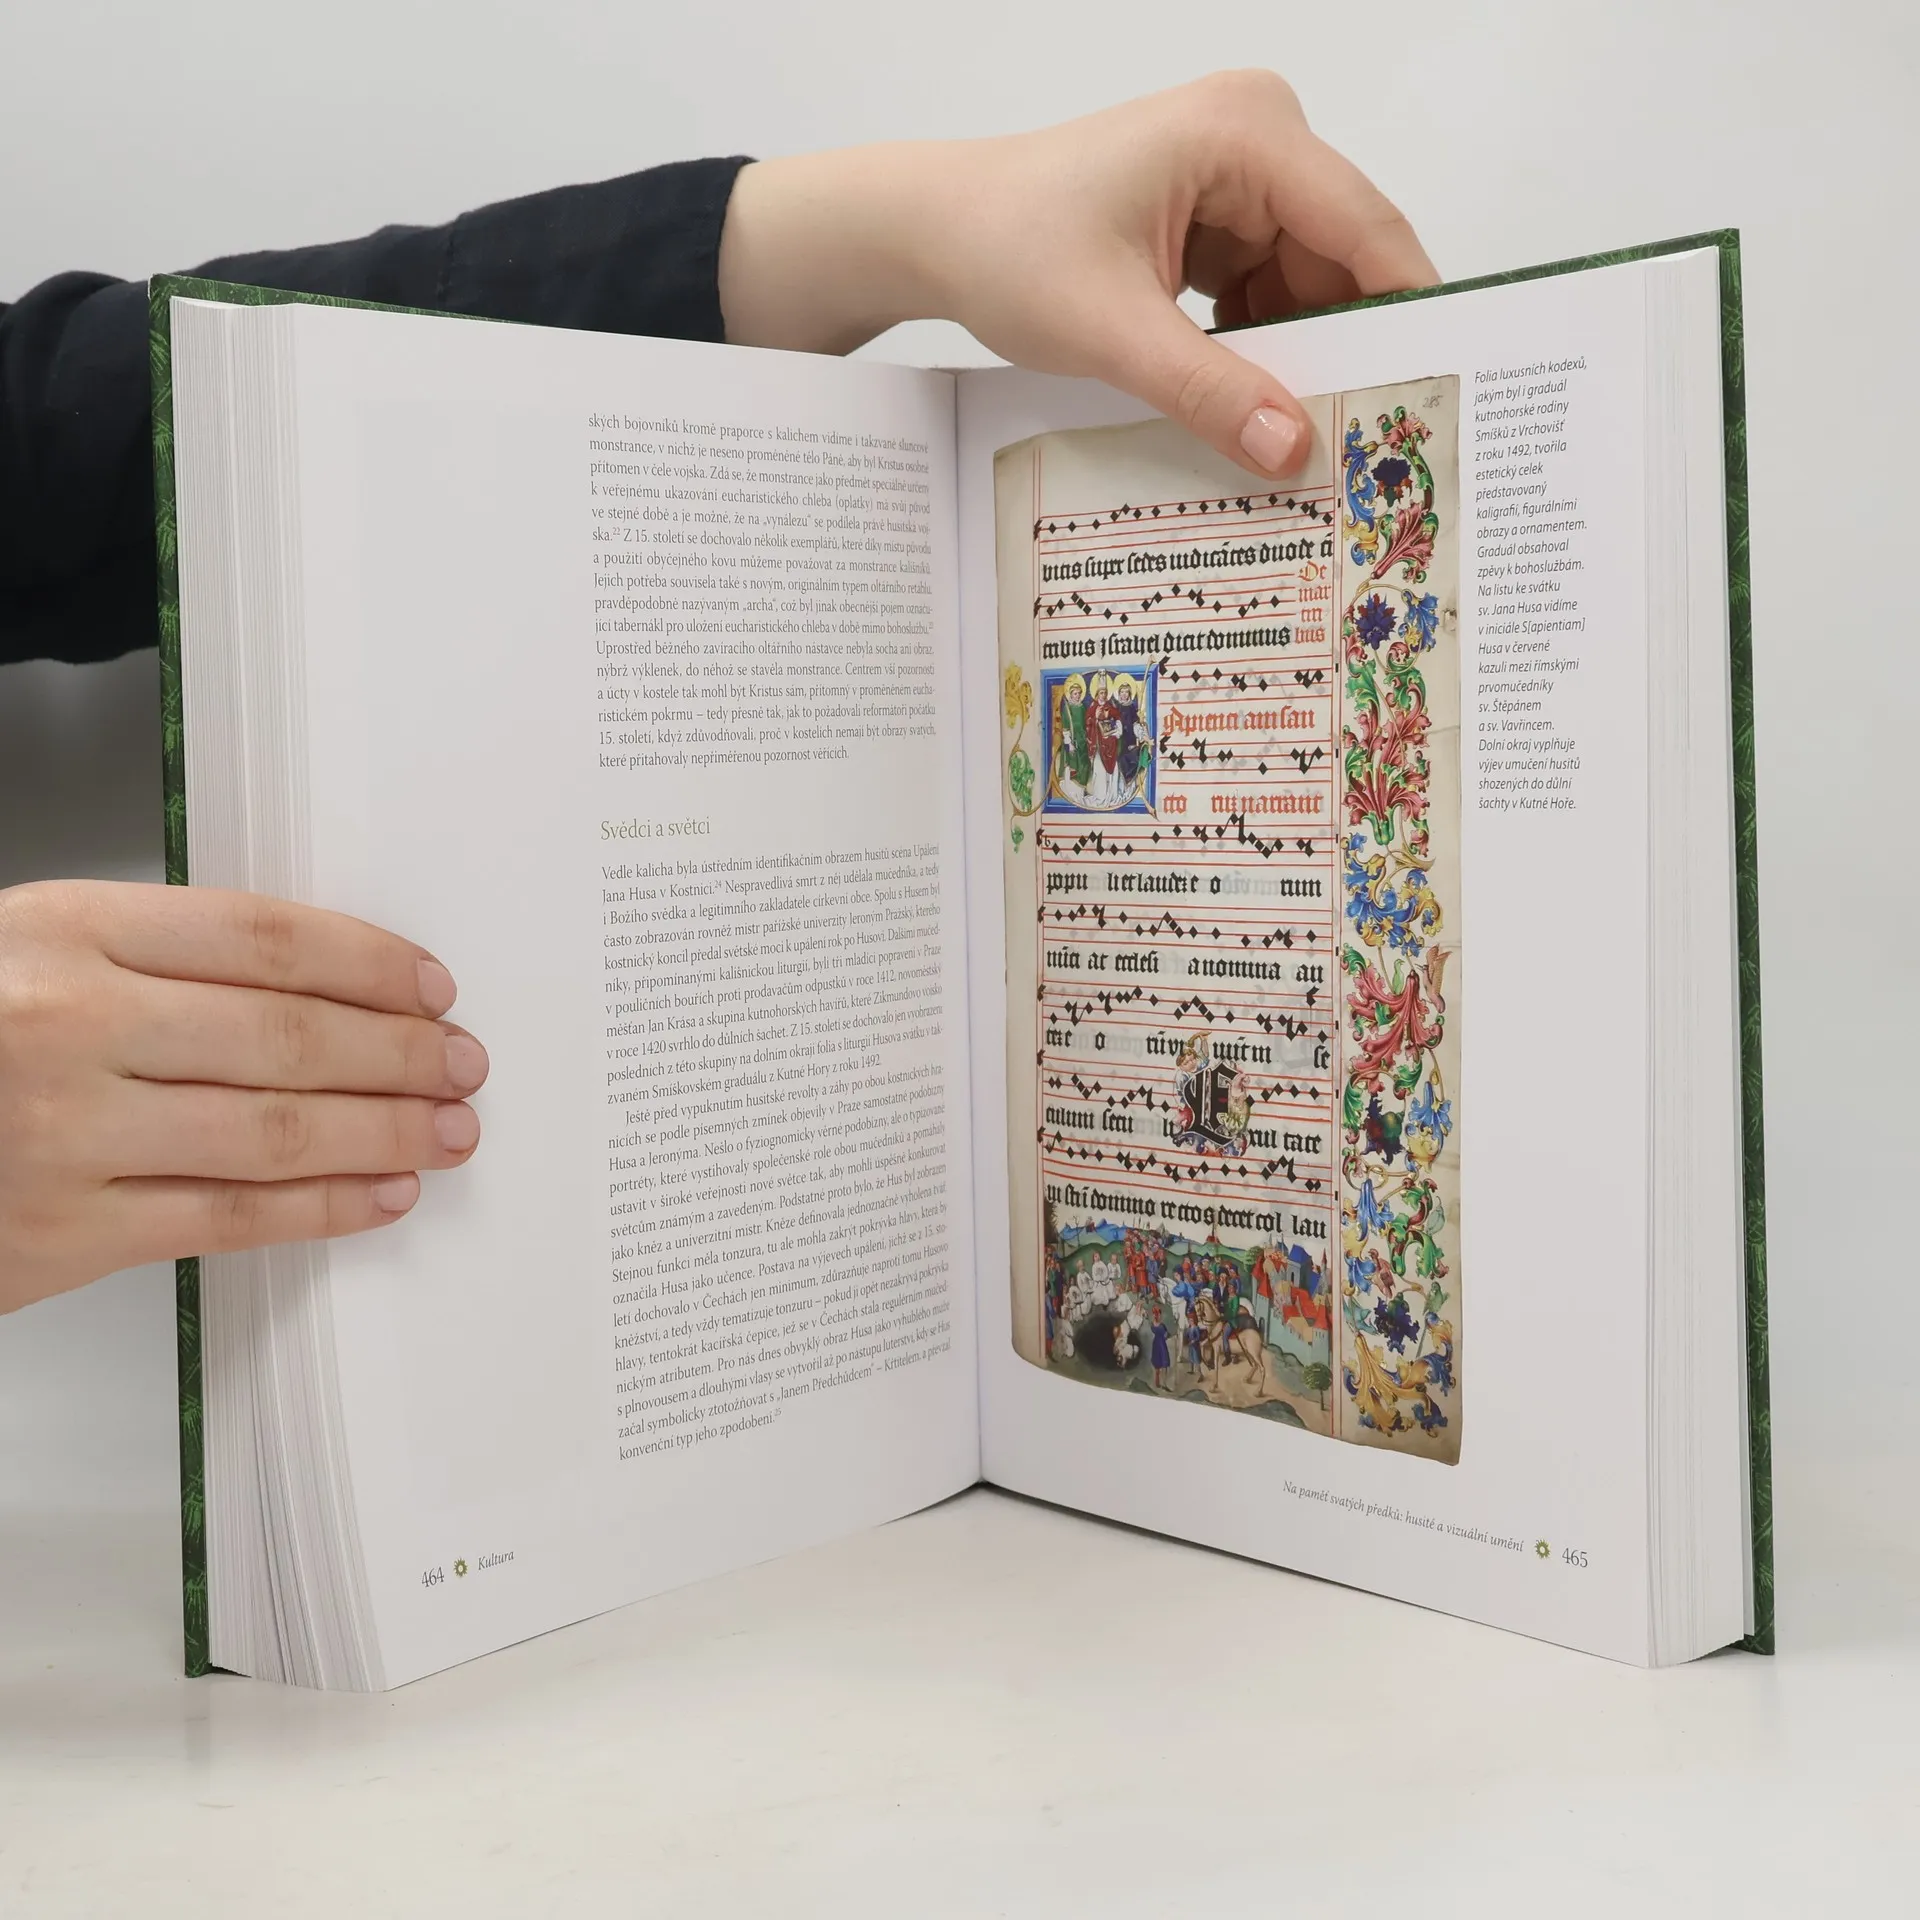 ských bojovníků kromě praporce s kalichem vidíme i takzvané sluncové
monstrance, v nichž je neseno proměněné tělo Páně, aby byl Kristus osobně
přítomen v čele vojska. Zdá se, že monstrance jako předmět speciálně určený
k veřejnému ukazování eucharistického chleba (oplatky) má svůj původ
ve stejné době a je možné, že na „vynálezu“ se podílela právě husitská voj-
ska.²² Z 15. století se dochovalo několik exemplářů, které díky místu původu
a použití obyčejného kovu můžeme považovat za monstrance kališníků.
Jejich potřeba souvisela také s novým, originálním typem oltářního retáblu,
pravděpodobně nazývaným „archa“, což byl jinak obecnější pojem označu-
jící tabernákl pro uložení eucharistického chleba v době mimo bohoslužbu.²³
Uprostřed běžného zavíracího oltářního nástavce nebyla socha ani obraz,
nýbrž výklenek, do něhož se stavěla monstrance. Centrem vší pozornosti
a úcty v kostele tak mohl být Kristus sám, přítomný v proměněném eucha-
ristickém pokrmu – tedy přesně tak, jak to požadovali reformátoři počátku
15. století, když zdůvodňovali, proč v kostelích nemají být obrazy svatých,
které přitahovaly nepřiměřenou pozornost věřících.
Svědci a světci
Vedle kalicha byla ústředním identifikačním obrazem husitů scéna Upálení
Jana Husa v Kostnici.²⁴ Nespravedlivá smrt z něj udělala mučedníka, a tedy
i Božího svědka a legitimního zakladatele církevní obce. Spolu s Husem byl
často zobrazován rovněž mistr pařížské univerzity Jeroným Pražský, kterého
kostnický koncil předal světské moci k upálení rok po Husovi. Dalšími mučed-
níky, připomínanými kališnickou liturgií, byli tři mladíci popravení v Praze
v pouličních bouřích proti prodavačům odpustků v roce 1412, novoměstský
měšťan Jan Krása a skupina kutnohorských havířů, které Zikmundovo vojsko
v roce 1420 svrhlo do důlních šachet. Z 15. století se dochovalo jen vyobrazení
posledních z této skupiny na dolním okraji folia s liturgií Husova svátku v tak-
zvaném Smíškovském graduálu z Kutné Hory z roku 1492.
Ještě před vypuknutím husitské revolty a záhy po obou kostnických hra-
nicích se podle písemných zmínek objevily v Praze samostatné podobizny
Husa a Jeronýma. Nešlo o fyziognomicky věrné podobizny, ale o typizované
portréty, které vystihovaly společenské role obou mučedníků a pomáhaly
ustavit v široké veřejnosti nové světce tak, aby mohli úspěšně konkurovat
světcům známým a zavedeným. Podstatné proto bylo, že Hus byl zobrazen
jako kněz a univerzitní mistr. Kněze definovala jednoznačně vyholená tvář
Stejnou funkci měla tonzura, tu ale mohla zakrýt pokrývka hlavy, která by
označila Husa jako učence. Postava na výjevech upálení, jichž se z 15. sto-
letí dochovalo v Čechách jen minimum, zdůrazňuje naproti tomu Husovo
kněžství, a tedy vždy tematizuje tonzuru – pokud ji opět nezakrývá pokrývka
hlavy, tentokrát kacířská čepice, jež se v Čechách stala regulérním mučed-
nickým atributem. Pro nás dnes obvyklý obraz Husa jako vyhublého muže
s plnovousem a dlouhými vlasy se vytvořil až po nástupu luterství, kdy se Hus
začal symbolicky ztotožňovat s „Janem Předchůdcem“ – Křtitelem, a převzal
konvenční typ jeho zpodobení.²⁵
464 Kultura
285
bicis super sedes iudicātes duode cī
De
mar
tiri
bus
tribus israhel dicit dominus
Apienci am san
cto rum narrant
popu li et laudē e o rum
nūci at ecclesi a nomina au
teze o rū
se
culum secu li
E xul tate
iusti domino rectos decet col lau
Folia luxusních kodexů,
jakým byl i graduál
kutnohorské rodiny
Smíšků z Vrchovišť
z roku 1492, tvořila
estetický celek
představovaný
kaligrafií, figurálními
obrazy a ornamentem.
Graduál obsahoval
zpěvy k bohoslužbám.
Na listu ke svátku
sv. Jana Husa vidíme
v iniciále S[apientiam]
Husa v červené
kazuli mezi římskými
prvomučedníky
sv. Štěpánem
a sv. Vavřincem.
Dolní okraj vyplňuje
výjev umučení husitů
shozených do důlní
šachty v Kutné Hoře.
Na paměť svatých předků: husité a vizuální umění 465